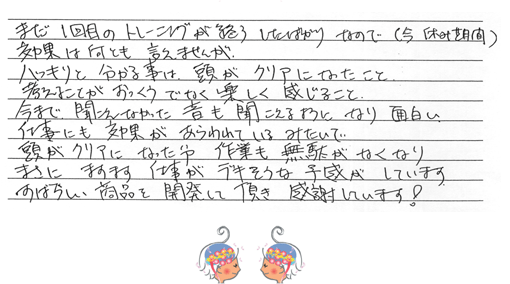 まだ1回目のトレーニングが終了したばかりなので(今休み期間)
効果は何とも言えませんが、
ハッキリと分かる事は、頭がクリアになったこと。
考えることがおっくうでなく楽しく感じること。
今まで聞こえなかった音も聞こえるようになり面白い
仕事にも効果があらわれているみたいで
頭がクリアになった分 作業も無駄がなくなり
まさにますます仕事がデキそうな予感がしています。
すばらしい商品を開発して頂き感謝しています!